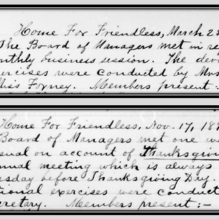 Home For Friendless, March 2
The Board of Managers met in re
nthly business session. The dev
ercises were conducted by Mrs
Forney. Members present :-
Home For Friendless, Nov. 17, 18
Board of Managers met one w
sual on account of Thanksgivi
nual meeting which is always
sday before Thanksgiving Day.
tional exercises were conduct
cretary. Members present ;-